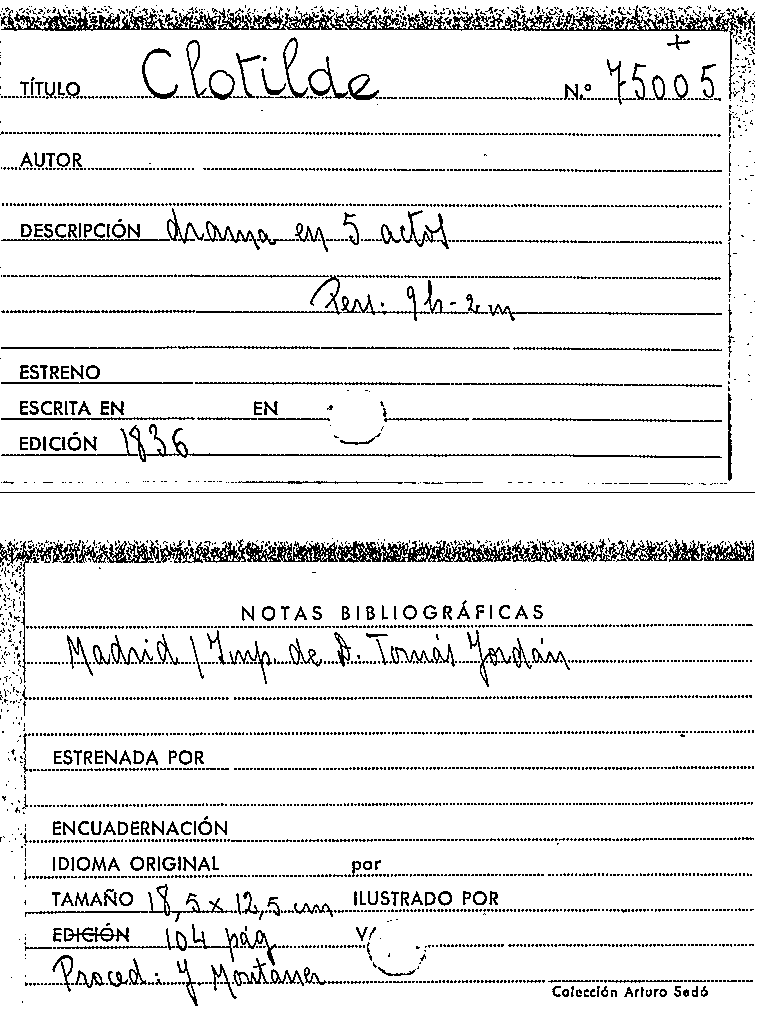 +
TÍTULO Clotilde N.º 75005
AUTOR
DESCRIPCIÓN drama en 5 actos
Pers: 9 h - 2 m
ESTRENO
ESCRITA EN EN
EDICIÓN 1836
NOTAS BIBLIOGRÁFICAS
Madrid / Imp. de D. Tomás Jordán
ESTRENADA POR
ENCUADERNACIÓN
IDIOMA ORIGINAL por
TAMAÑO 18,5 x 12,5 cm ILUSTRADO POR
EDICIÓN 104 pág V/
Proced: Y Montaner
Colección Arturo Sedó